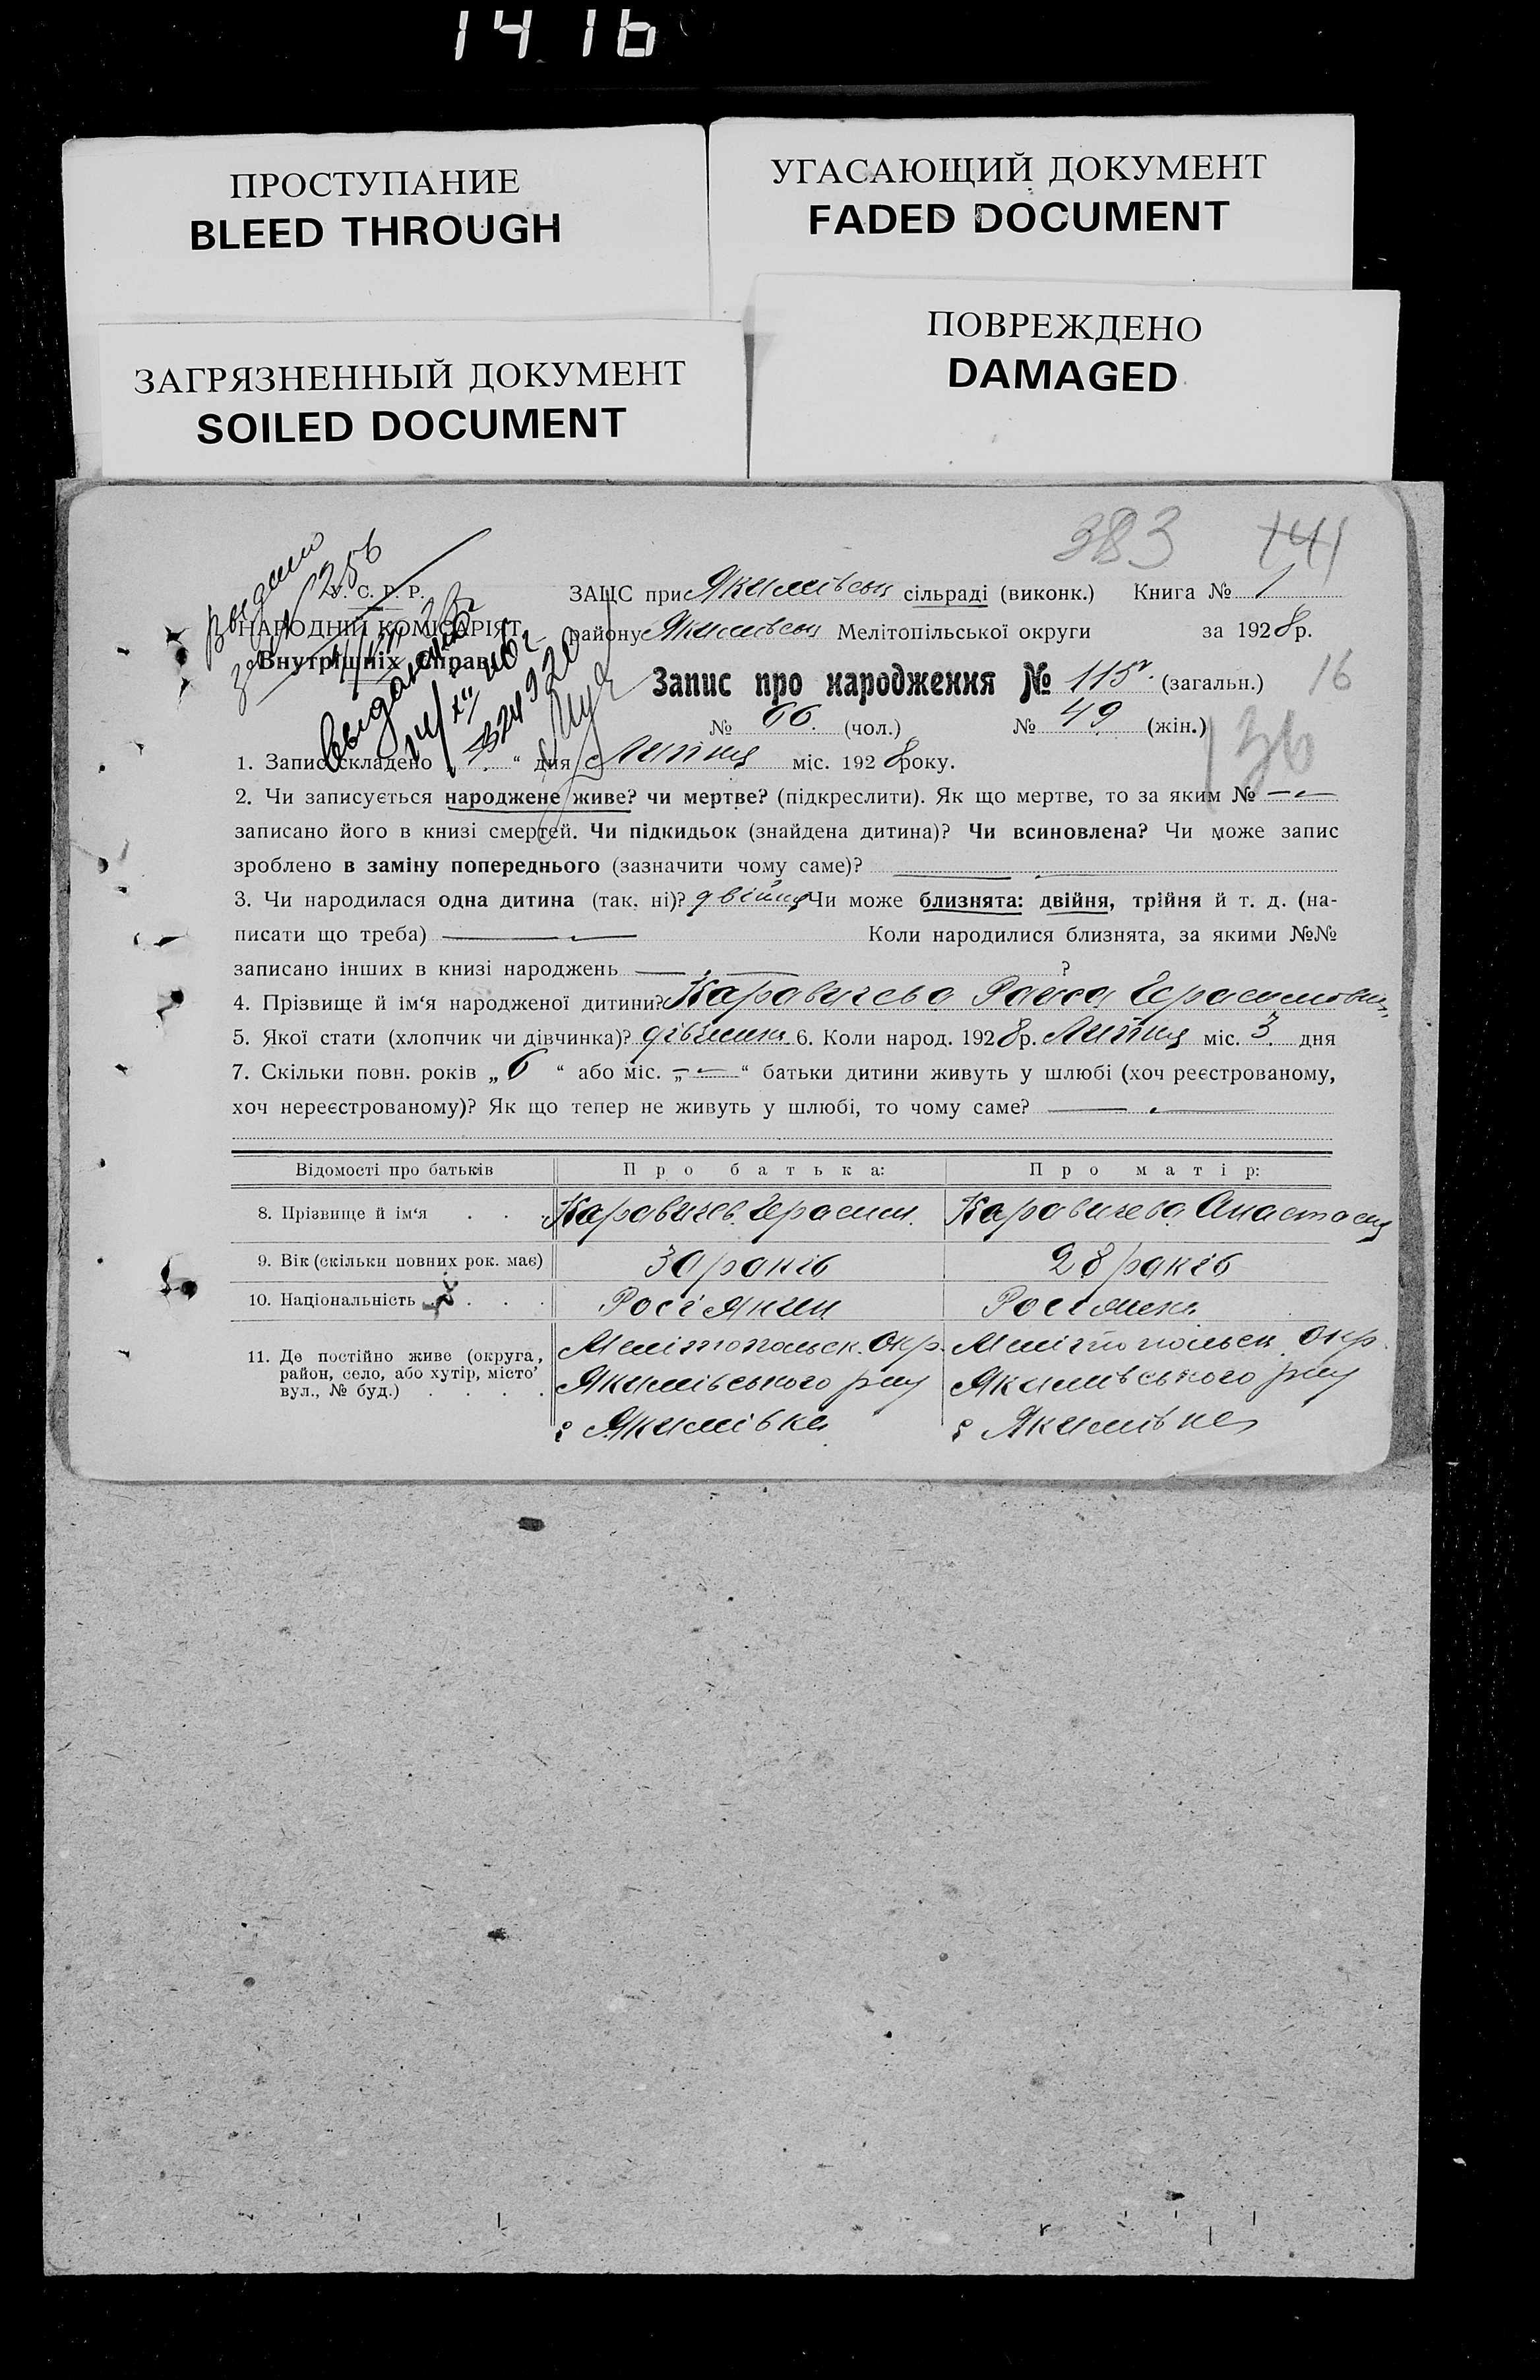 14 16
ПРОСТУПАНИЕ
BLEED THROUGH
УГАСАЮЩИЙ ДОКУМЕНТ
FADED DOCUMENT
ЗАГРЯЗНЕННЫЙ ДОКУМЕНТ
SOILED DOCUMENT
ПОВРЕЖДЕНО
DAMAGED
383 141
У. С. Р. Р.
НАРОДНІЙ КОМІСАРІЯТ
Внутрішніх Справ
ЗАЦС при Якимівськ сільраді (виконк.) Книга № 1
району Якимівськ Мелітопільської округи за 1928 р.
Запис про народження № 115 (загальн.) 16
№ 66. (чол.) № 49 (жін.)
36
1. Запис складено „ “ дня Липня міс. 1928 року.
2. Чи записується народжене живе? чи мертве? (підкреслити). Як що мертве, то за яким № —
записано його в книзі смертей. Чи підкидьок (знайдена дитина)? Чи всиновлена? Чи може запис
зроблено в заміну попереднього (зазначити чому саме)? —
3. Чи народилася одна дитина (так, ні)? двійня Чи може близнята: двійня, трійня й т. д. (на-
писати що треба) — Коли народилися близнята, за якими №№
записано інших в книзі народжень — ?
4. Прізвище й ім‘я народженої дитини? Каравичева Раиса Герасимовн.
5. Якої стати (хлопчик чи дівчинка)? дівчинка 6. Коли народ. 1928 р. Липня міс. 3 дня
7. Скільки повн. років „6“ або міс. „—“ батьки дитини живуть у шлюбі (хоч реєстрованому,
хоч нереєстрованому)? Як що тепер не живуть у шлюбі, то чому саме? —
Відомості про батьків Про батька: Про матір:
8. Прізвище й ім‘я Каравичев Герасим. Каравичева Анастасия
9. Вік (скільки повних рок. має) 30 років 28 років
10. Національність Росіянин Росіянка
11. Де постійно живе (округа, район, село, або хутір, місто’ вул., № буд.) Мелітопольск. Окр. Мелітопольск. Окр.
Якимівського р-ну Якимівського р-ну
с Якимівка с Якимівка